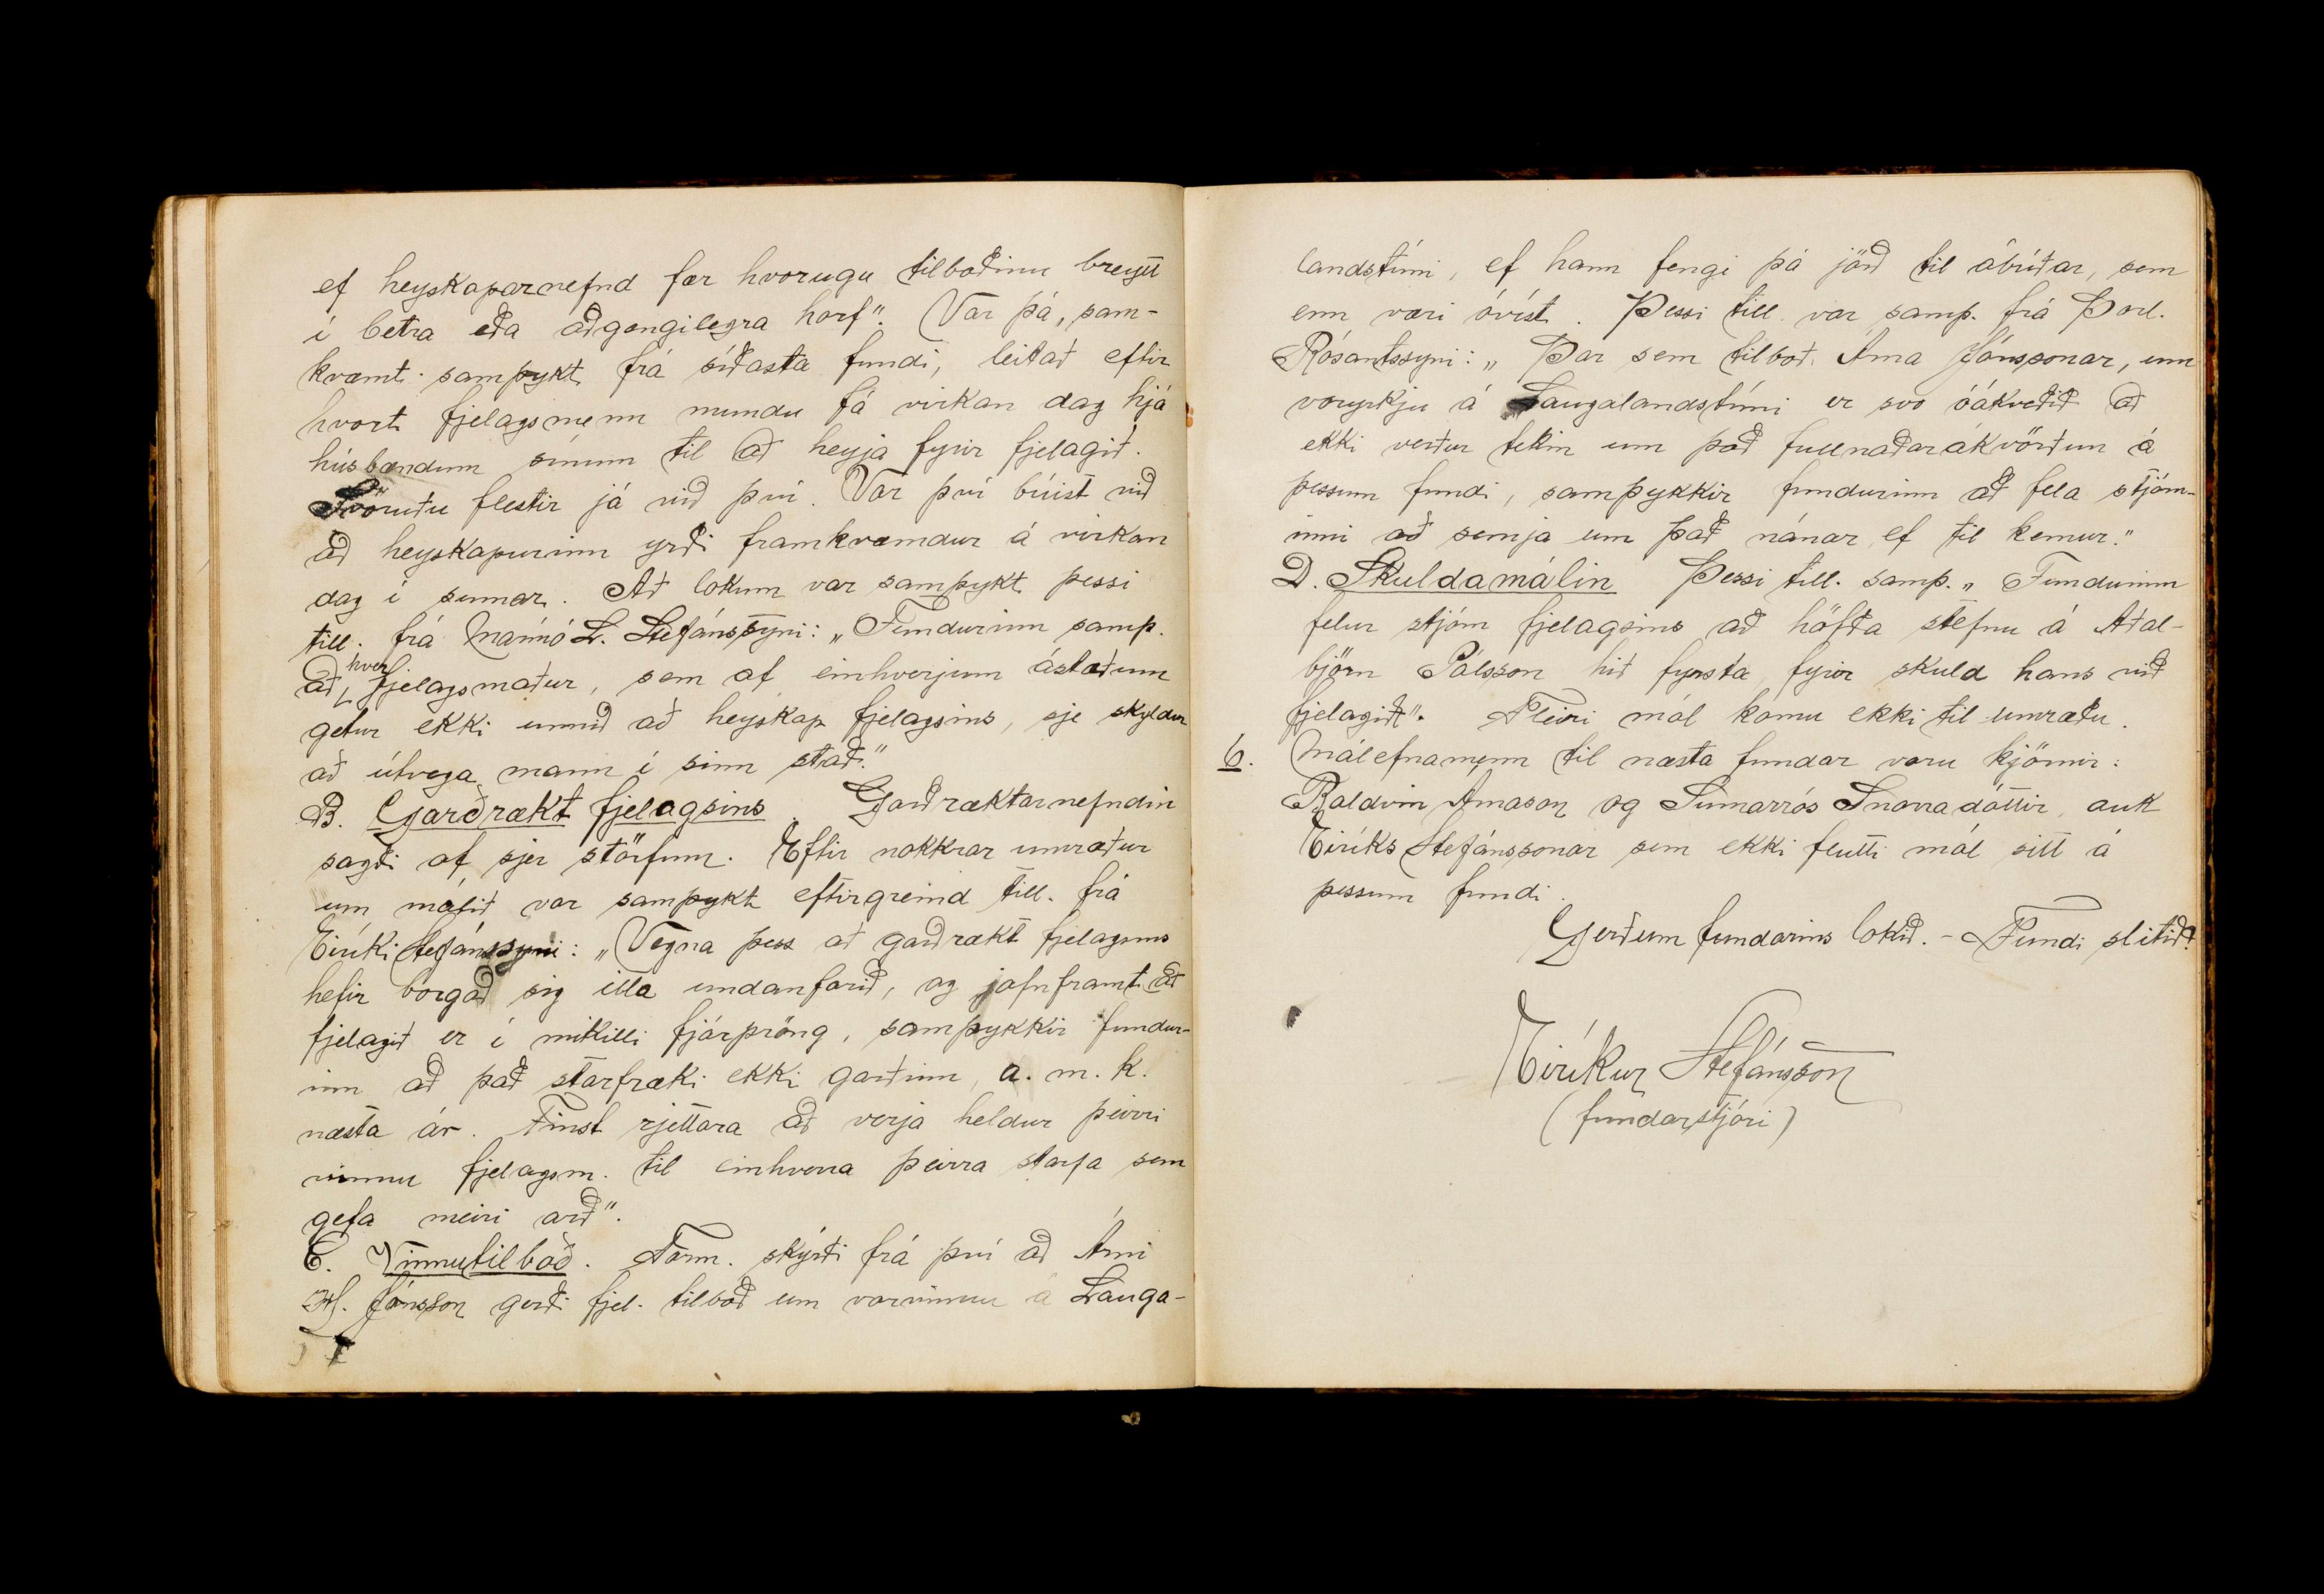 ef heyskaparnefnd fær hvorugu tilboðinu breytt
í betra eða aðgengilegra horf". Var þá, sam-
kvæmt samþykt frá síðasta fundi, leitað eftir
hvort fjelagsmenn mundu fá virkan dag hjá
húsbændum sínum til að heyja fyrir fjelagið.
Svöruðu flestir já við því. Var því búist við
að heyskapurinn yrði framkvæmdur á virkan
dag í sumar. Að lokum var samþykt þessi
till. frá Mainó L. Stefánssyni: „Fundurinn samþ.
að hver fjelagsmaður, sem af einhverjum ástæðum
getur ekki unnið að heyskap fjelagsins, sje skyldur
að útvega mann í sinn stað."
B. Garðrækt fjelagsins. Garðræktarnefndin
sagði af sjer störfum. Eftir nokkrar umræður
um málið var samþykt eftirgreind till. frá
Eiríki Stefánssyni: „Vegna þess að garðrækt fjelagsins
hefir borgað sig illa undanfarið, og jafnframt að
fjelagið er í mikilli fjárþröng, samþykkir fundur-
inn að það starfræki ekki garðinn, a. m. k.
næsta ár. Finst rjettara að verja heldur þeirri
vinnu fjelagsm. til einhverra þeirra starfa sem
gefa meiri arð".
C. Vinnutilboð. Form. skýrði frá því að Árni
H. Jónsson gerði fjel. tilboð um vorvinnu á Lauga-
landstúni, ef hann fengi þá jörð til ábúðar, sem
enn væri óvíst. Þessi till. var samþ. frá Þorl.
Rósantssyni: „Þar sem tilboð Árna Jónssonar, um
voryrkju á Laugalandstúni er svo óákveðið að
ekki verður tekin um það fullnaðarákvörðun á
þessum fundi, samþykkir fundurinn að fela stjórn-
inni að semja um það nánar, ef til kemur."
D. Skuldamálin Þessi till. samþ. „Fundurinn
felur stjórn fjelagsins að höfða stefnu á Aðal-
björn Pálsson hið fyrsta, fyrir skuld hans við
fjelagið". Fleiri mál komu ekki til umræðu.
6. Málefnamenn til næsta fundar voru kjörnir:
Baldvin Árnason og Sumarrós Snorradóttir, auk
Eiríks Stefánssonar sem ekki flutti mál sitt á
þessum fundi.
Gerðum fundarins lokið. - Fundi slitið.
Eiríkur Stefánsson
(fundarstjóri)